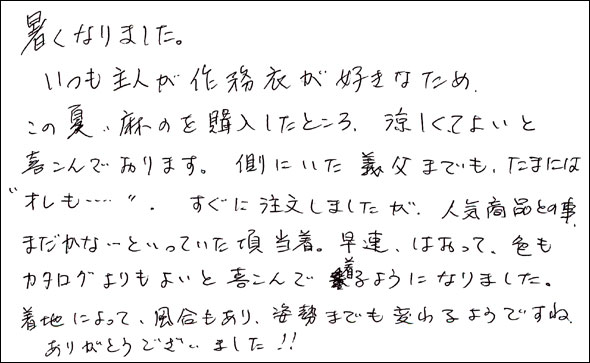 暑くなりました。
いつも主人が作務衣が好きなため、
この夏、麻のを購入したところ、涼しくてよいと
喜こんでおります。側にいた義父までも、たまには
"オレも……"。すぐに注文しましたが、人気商品との事、
まだかな〜といっていた頃当着。早速、はおって、色も
カタログよりもよいと喜こんで着るようになりました。
着地によって、風合もあり、姿勢までも変わるようですね。
ありがとうございました!!